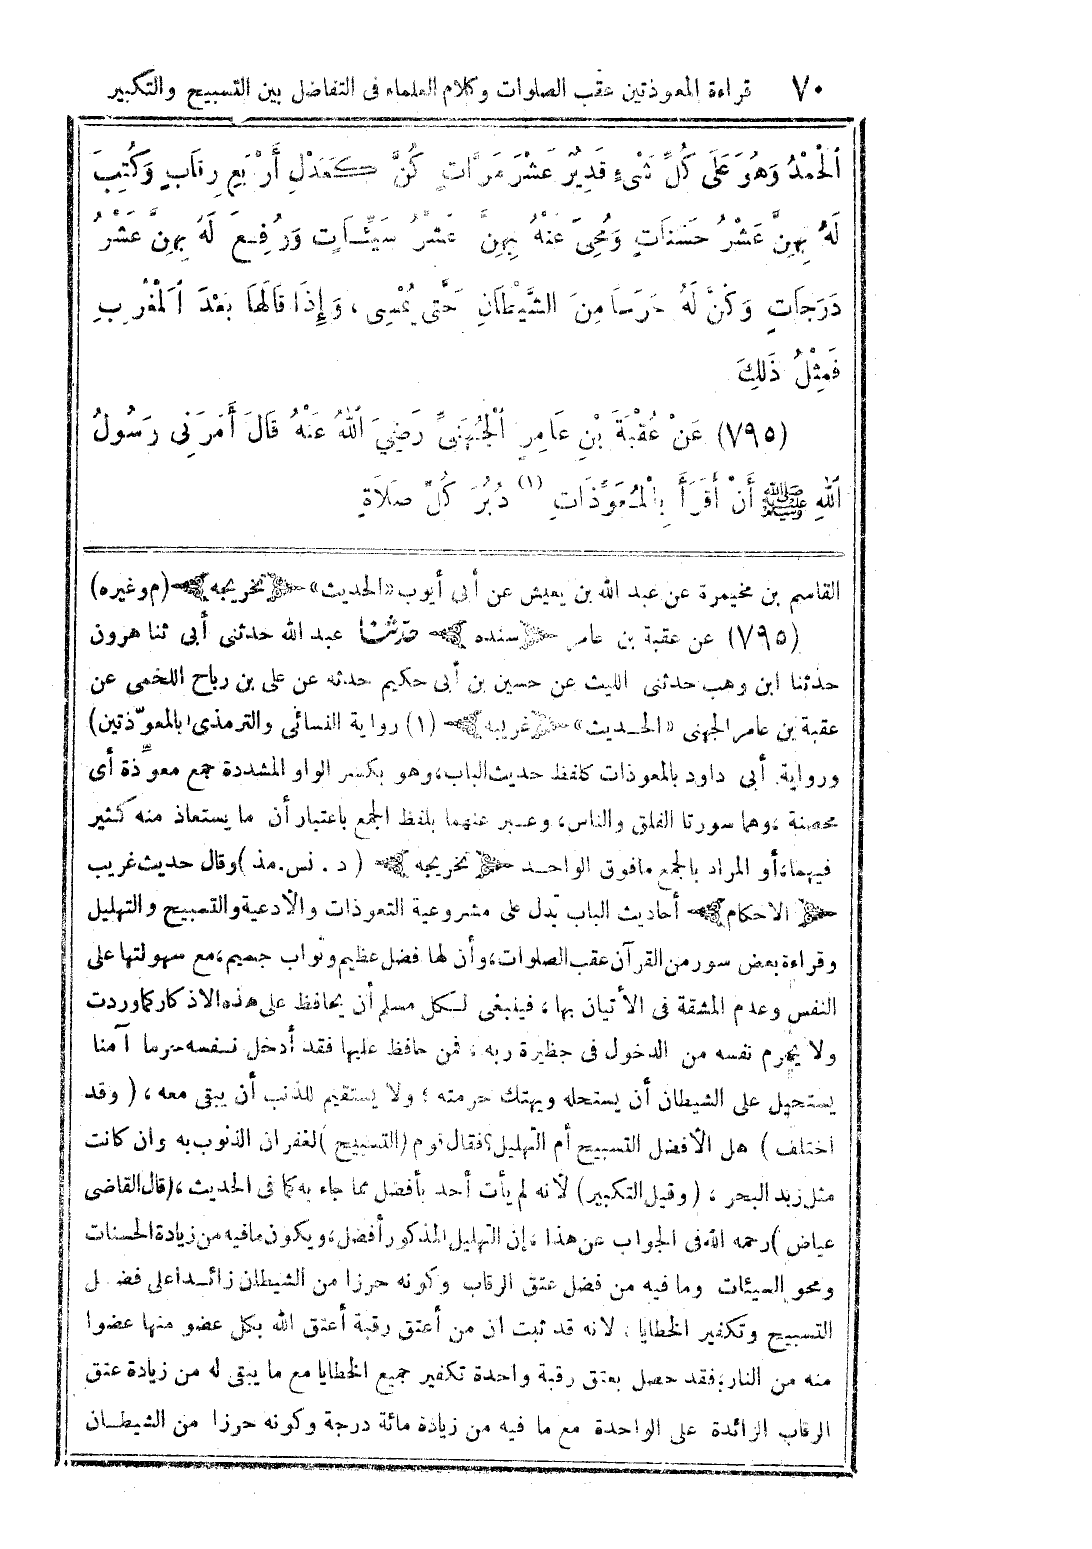 ٧٠ قراءة المعوذتين عقب الصلوات وكلام العلماء فى التفاضل بين التسبيح والتكبير
ٱلْحَمْدُ وَهُوَ عَلَى كُلِّ شَىْءٍ قَدِيرٌ عَشْرَ مَرَّاتٍ كُنَّ كَعَدْلِ أَرْبَعِ رِقَابٍ وَكُتِبَ
لَهُ بِهِنَّ عَشْرُ حَسَنَاتٍ وَمُحِىَ عَنْهُ بِهِنَّ عَشْرُ سَيِّئَاتٍ وَرُفِعَ لَهُ بِهِنَّ عَشْرُ
دَرَجَاتٍ وَكُنَّ لَهُ حَرَسًا مِنَ الشَّيْطَانِ حَتَّى يُمْسِى ، وَإِذَا قَالَهَا بَعْدَ ٱلْمَغْرِبِ
فَمِثْلُ ذَلِكَ
(٧٩٥) عَنْ عُقْبَةَ بْنِ عَامِرٍ ٱلْجُهَنِىِّ رَضِيَ ٱللهُ عَنْهُ قَالَ أَمَرَنِى رَسُولُ
ٱللهِ ﷺ أَنْ أَقْرَأَ بِالْمُعَوِّذَاتِ (١) دُبُرَ كُلِّ صَلَاةٍ
القاسم بن مخيمرة عن عبد الله بن يعيش عن أبى أيوب «الحديث» ﴿تخريجه﴾ (م وغيره)
(٧٩٥) عن عقبة بن عامر ﴿سنده﴾ حدثنا عبد الله حدثنى أبى ثنا هرون
حدثنا ابن وهب حدثنى الليث عن حسين بن أبى حكيم حدثه عن على بن رباح اللخمى عن
عقبة بن عامر الجهنى «الحديث» ﴿غريبه﴾ (١) رواية النسائى والترمذى (بالمعوّذتين)
ورواية أبى داود بالمعوذات كلفظ حديث الباب، وهو بكسر الواو المشددة جمع معوِّذة أى
محصنة ، وهما سورتا الفلق والناس، وعبر عنهما بلفظ الجمع باعتبار أن ما يستعاذ منه كثير
فيهما، أو المراد بالجمع مافوق الواحد ﴿تخريجه﴾ ( د . نس . مذ ) وقال حديث غريب
﴿الاحكام﴾ أحاديث الباب تدل على مشروعية التعوذات والأدعية والتسبيح والتهليل
وقراءة بعض سور من القرآن عقب الصلوات، وأن لها فضل عظيم وثواب جسيم، مع سهولتها على
النفس وعدم المشقة فى الأتيان بها ، فينبغى لكل مسلم أن يحافظ على هذه الاذكار كما وردت
ولا يحرم نفسه من الدخول فى حظيرة ربه ، فمن حافظ عليها فقد أدخل نفسه حرما آمنا
يستحيل على الشيطان أن يستحله ويهتك حرمته ؛ ولا يستقيم للذنب أن يبقى معه ، ( وقد
اختلف ) هل الأفضل التسبيح أم التهليل؟ فقال قوم (التسبيح ) لغفران الذنوب به وان كانت
مثل زبد البحر ، ( وقيل التكبير) لأنه لم يأت أحد بأفضل مما جاء به كما فى الحديث ، (قال القاضى
عياض ) رحمه الله فى الجواب عن هذا ، إن التهليل المذكور أفضل، ويكون ما فيه من زيادة الحسنات
ومحو السيئات وما فيه من فضل عتق الرقاب وكونه حرزا من الشيطان زائدا على فضل
التسبيح وتكفير الخطايا ، لانه قد ثبت ان من أعتق رقبة أعتق الله بكل عضو منها عضوا
منه من النار؛ فقد حصل بعتق رقبة واحدة تكفير جميع الخطايا مع ما يبقى له من زيادة عتق
الرقاب الزائدة على الواحدة مع ما فيه من زيادة مائة درجة وكونه حرزا من الشيطان